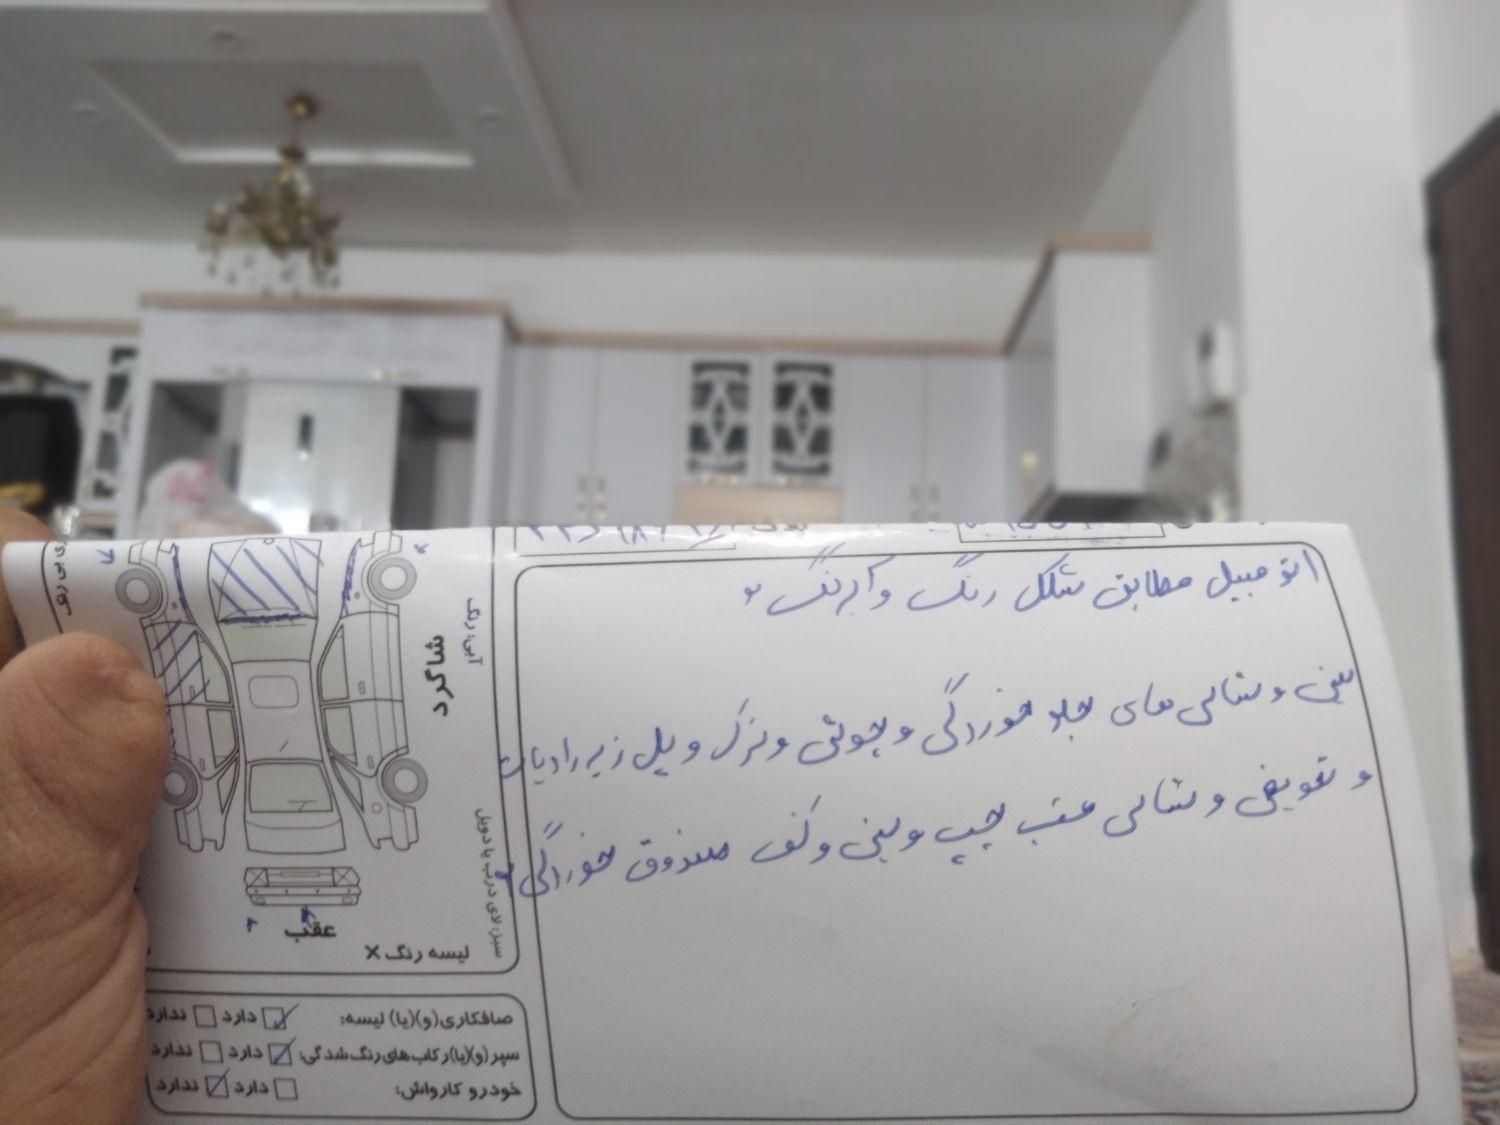 اتومبیل مطابق شکل رنگ و آبرنگ
سینی و شالی های جلو خوردگی و جوشی و ترک و پل زیر رادیات
و تعویض و شالی عقب چپ و سینی و کف صندوق خوردگی
شاگرد
آبی: رنگ
سبز: لای درب یا دوبل
عقب
لیسه رنگ X
صافکاری(و)(یا) لیسه: دارد ندارد
سپر(و)(یا)رکاب‌های رنگ‌شدگی: دارد ندارد
خودرو کارواش: دارد ندارد